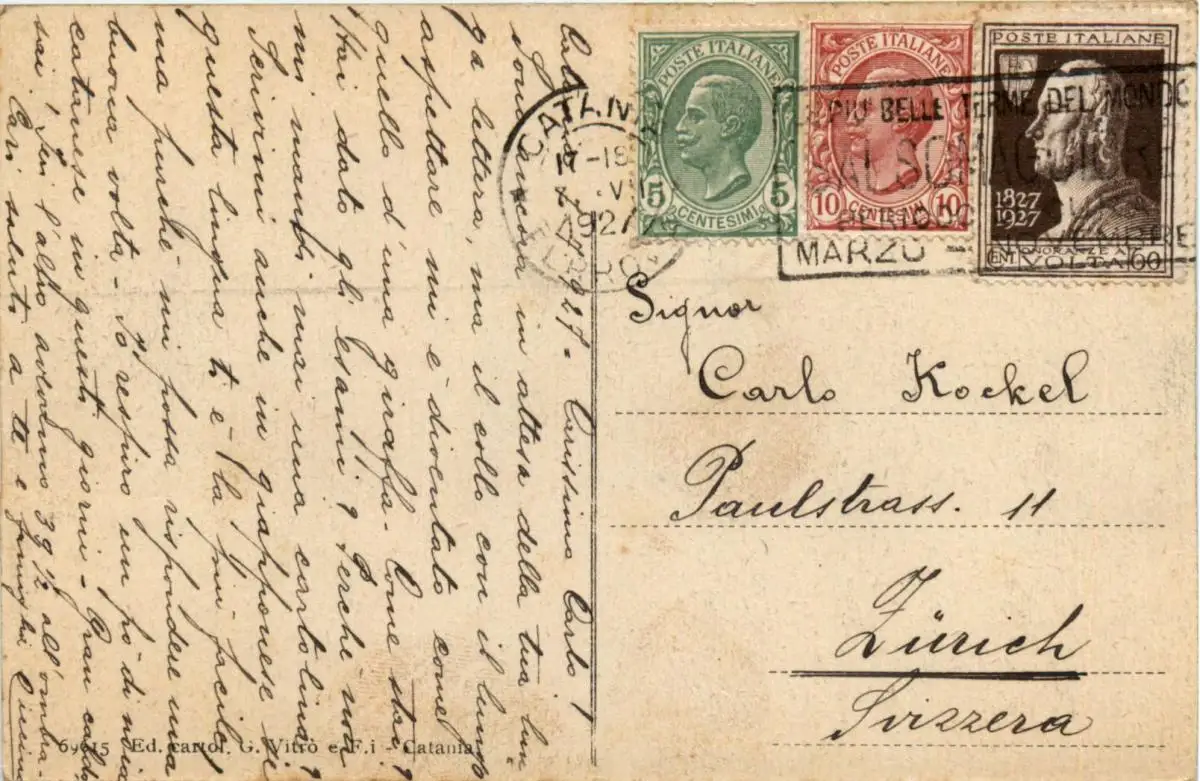 POSTE ITALIANE
5 CENTESIMI 5
POSTE ITALIANE
10 CENTESIMI 10
POSTE ITALIANE
1827
1927
VOLTA
CENT 60
CATANIA
17-18
1927
FERROV
PIÙ BELLE TERME DEL MONDO
SALSOMAGGIORE
PERIODO
MARZO - NOVEMBRE
Signor
Carlo Kockel
Paulstrass. 11
Zürich
Svizzera
1927. Carissimo Carlo!
Sono ancora in attesa della tua lun
ga lettera, ma il collo con il lungo
aspettare mi è diventato come
quello d'una giraffa. Come stai?
Hai dato gli esami? Perchè non
mi mandi mai una cartolina?
Scrivimi anche in giapponese se
questa lingua ti è la più facile
ma purchè mi possa rispondere una
buona volta - Io respiro un pò di
catanese in questi giorni - Gran caldo
sai! Ieri l'altro 39 ½ all'ombra.
Cari saluti a te e famiglia
69615 Ed. cartol. G. Vitrò e F.i - Catania